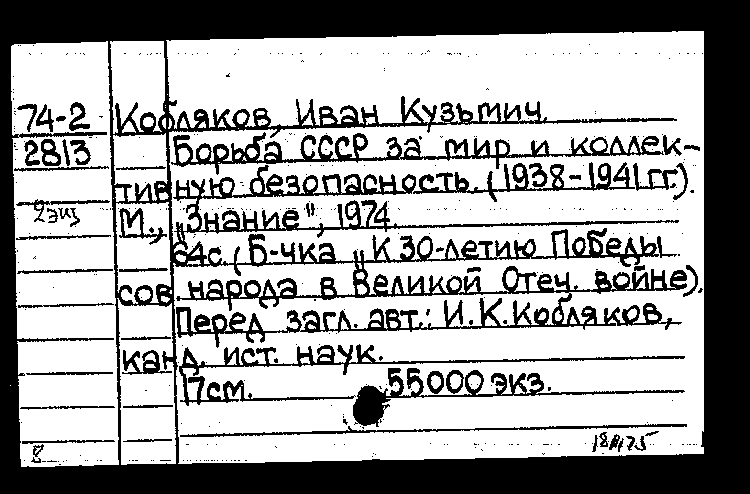 74-2 Кобляков, Иван Кузьмич.
2813 Борьба СССР за мир и коллек-
тивную безопасность. (1938-1941 гг.).
2экз М., „Знание", 1974.
64с. (Б-чка „К 30-летию Победы
сов. народа в Великой Отеч. войне).
Перед загл. авт.: И.К.Кобляков,
канд. ист. наук.
17см. 55000 экз.
8